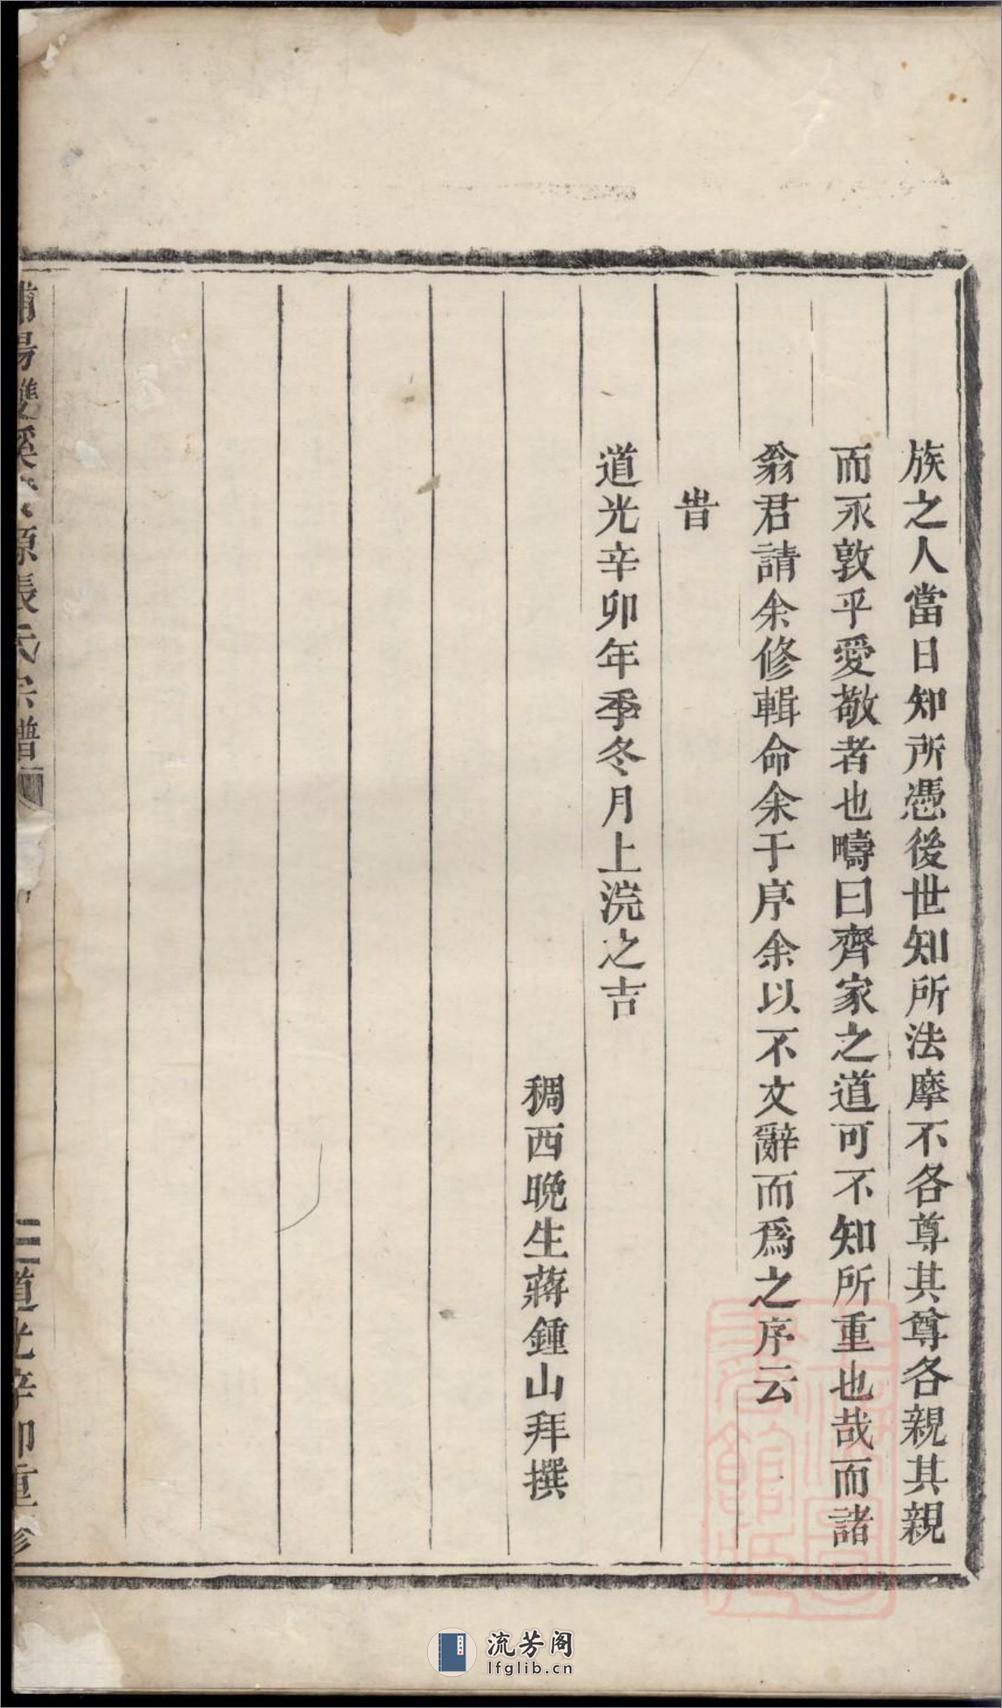 族之人當日知所憑後世知所法摩不各尊其尊各親其親
而永敦乎愛敬者也疇曰齊家之道可不知所重也哉而諸
翁君請余修輯命余于序余以不文辭而爲之序云
旹
道光辛卯年季冬月上浣之吉
稠西晚生蔣鍾山拜撰
浦陽雙溪 源張氏宗譜
道光辛卯重修
流芳阁
lfglib.cn